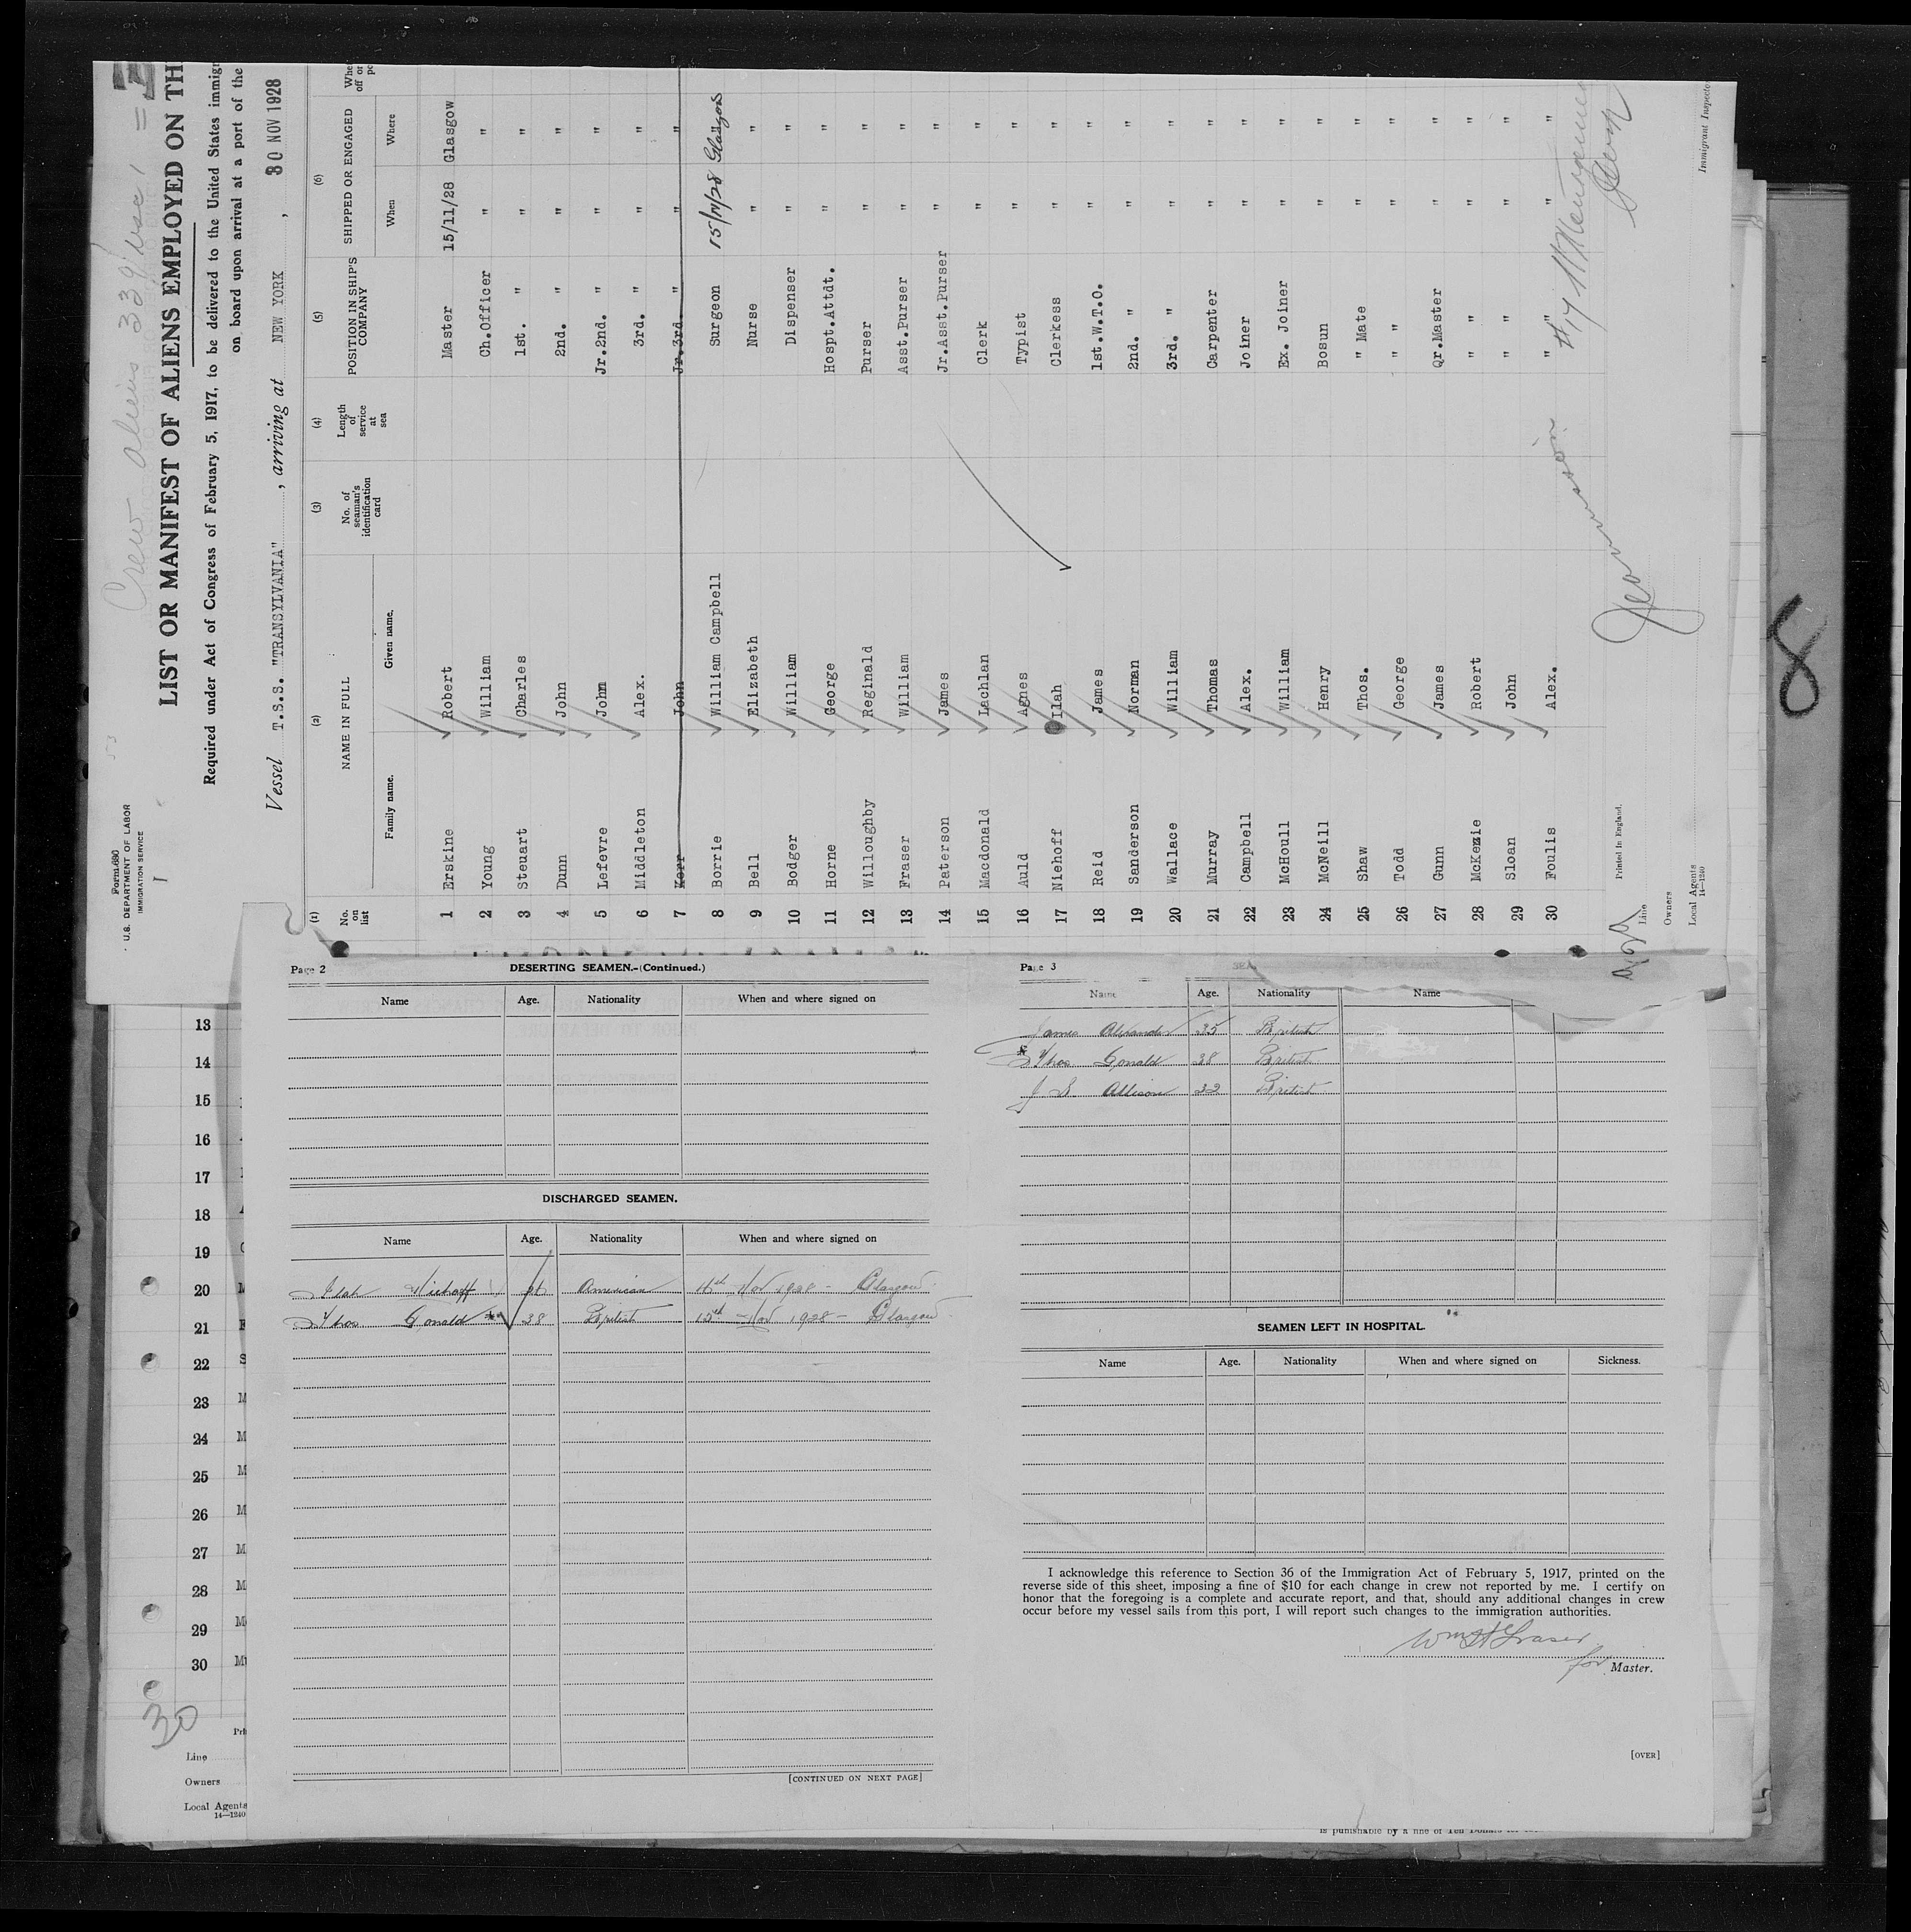 Form 680
U.S. DEPARTMENT OF LABOR
IMMIGRATION SERVICE
Crew aliens 339
LIST OR MANIFEST OF ALIENS EMPLOYED ON TH
Required under Act of Congress of February 5, 1917, to be delivered to the United States immigr
on board upon arrival at a port of the
Vessel T.S.S. "TRANSYLVANIA" , arriving at NEW YORK , 30 NOV 1928
(1) (2) (3) (4) (5) (6)
No. on list NAME IN FULL No. of seaman's identification card Length of service at sea POSITION IN SHIP'S COMPANY SHIPPED OR ENGAGED
Family name. Given name. When Where
1 Erskine Robert Master 15/11/28 Glasgow
2 Young William Ch.Officer " "
3 Steuart Charles 1st. " " "
4 Dunn John 2nd. " " "
5 Lefevre John Jr.2nd. " " "
6 Middleton Alex. 3rd. " " "
7 Kerr John Jr.3rd. " " "
8 Borrie William Campbell Surgeon 15/11/28 Glasgow
9 Bell Elizabeth Nurse " "
10 Bodger William Dispenser " "
11 Horne George Hospt.Attdt. " "
12 Willoughby Reginald Purser " "
13 Fraser William Asst.Purser " "
14 Paterson James Jr.Asst.Purser " "
15 Macdonald Lachlan Clerk " "
16 Auld Agnes Typist " "
17 Niehoff Ilah Clerkess " "
18 Reid James 1st.W.T.O. " "
19 Sanderson Norman 2nd. " " "
20 Wallace William 3rd. " " "
21 Murray Thomas Carpenter " "
22 Campbell Alex. Joiner " "
23 McHoull William Ex. Joiner " "
24 McNeill Henry Bosun " "
25 Shaw Thos. " Mate " "
26 Todd George " " " "
27 Gunn James Qr.Master " "
28 McKenzie Robert " " " "
29 Sloan John " " " "
30 Foulis Alex. " " " "
Printed in England.
Line
Owners
Local Agents
14—1240
Immigrant Inspector
8
13
14
15
16
17
18
19
20
21
22
23
24
25
26
27
28
29
30
30
Line
Owners
Local Agents
14—1240
Page 2
DESERTING SEAMEN.—(Continued.)
Name Age. Nationality When and where signed on
DISCHARGED SEAMEN.
Name Age. Nationality When and where signed on
Ilah Niehoff American Nov 1928 - Glasgow
Thos Gonald 38 British 15th Nov 1928 - Glasgow
[CONTINUED ON NEXT PAGE]
Page 3
Name Age. Nationality Name
James Alexander 35 British
Thos Gonald 38 British
J S. Allison 32 British
SEAMEN LEFT IN HOSPITAL.
Name Age. Nationality When and where signed on Sickness.
I acknowledge this reference to Section 36 of the Immigration Act of February 5, 1917, printed on the
reverse side of this sheet, imposing a fine of $10 for each change in crew not reported by me. I certify on
honor that the foregoing is a complete and accurate report, and that, should any additional changes in crew
occur before my vessel sails from this port, I will report such changes to the immigration authorities.
Wm H Fraser
for Master.
[OVER]